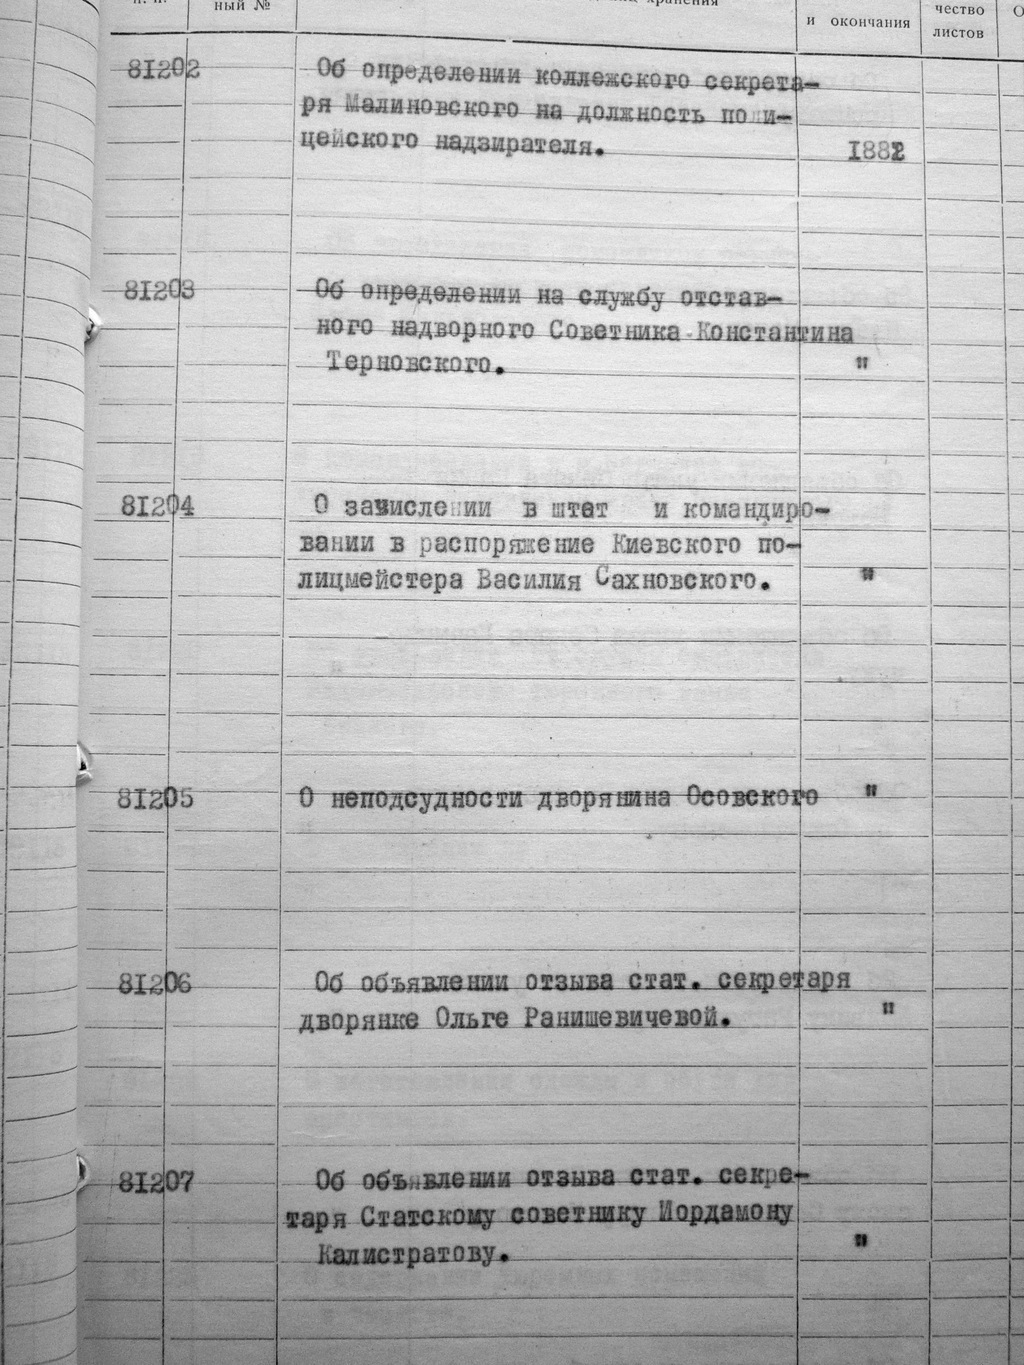 ный №
хранения
и окончания
чество
листов
81202
Об определении коллежского секрета-
ря Малиновского на должность поли-
цейского надзирателя.
1882
81203
Об определении на службу отстав-
ного надворного Советника Константина
Терновского.
"
81204
О зачислении в штат и командиро-
вании в распоряжение Киевского по-
лицмейстера Василия Сахновского.
"
81205
О неподсудности дворянина Осовского
"
81206
Об объявлении отзыва стат. секретаря
дворянке Ольге Ранишевичевой.
"
81207
Об объявлении отзыва стат. секре-
таря Статскому советнику Иордамону
Калистратову.
"